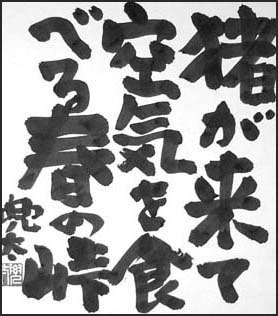 猪が来て
空気を食
べる春の峠
兜太